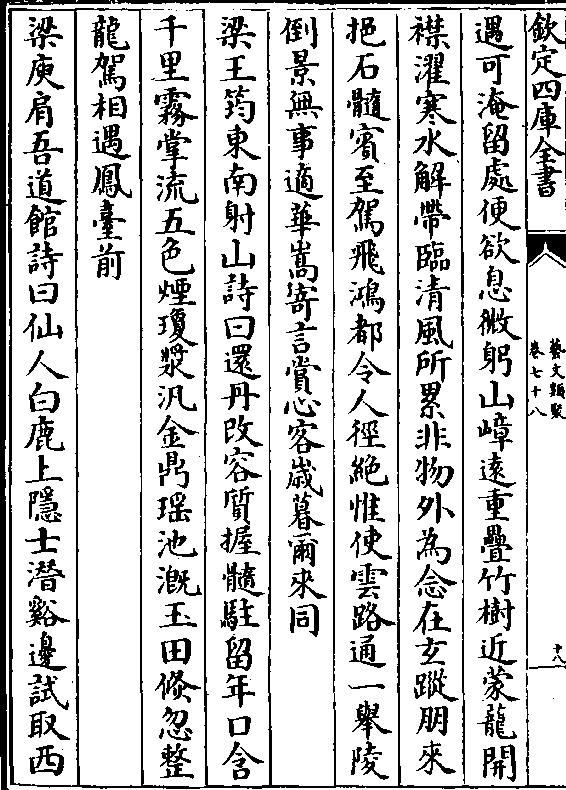 欽定四庫全書
藝文類聚
卷七十八
十八
遇可淹留處便欲息微躬山嶂遠重疊竹樹近蒙籠開
襟濯寒水解帶臨清風所累非物外為念在玄蹤朋來
挹石髓賓至駕飛鴻都令人徑絶惟使雲路通一舉陵
倒景無事適華嵩寄言賞心客歲暮爾來同
梁王筠東南射山詩曰還丹改容質握髓駐留年口含
千里霧掌流五色煙瓊漿汎金鼎瑶池溉玉田倐忽整
龍駕相遇鳳臺前
梁庾肩吾道館詩曰仙人白鹿上隱士潛谿邊試取西